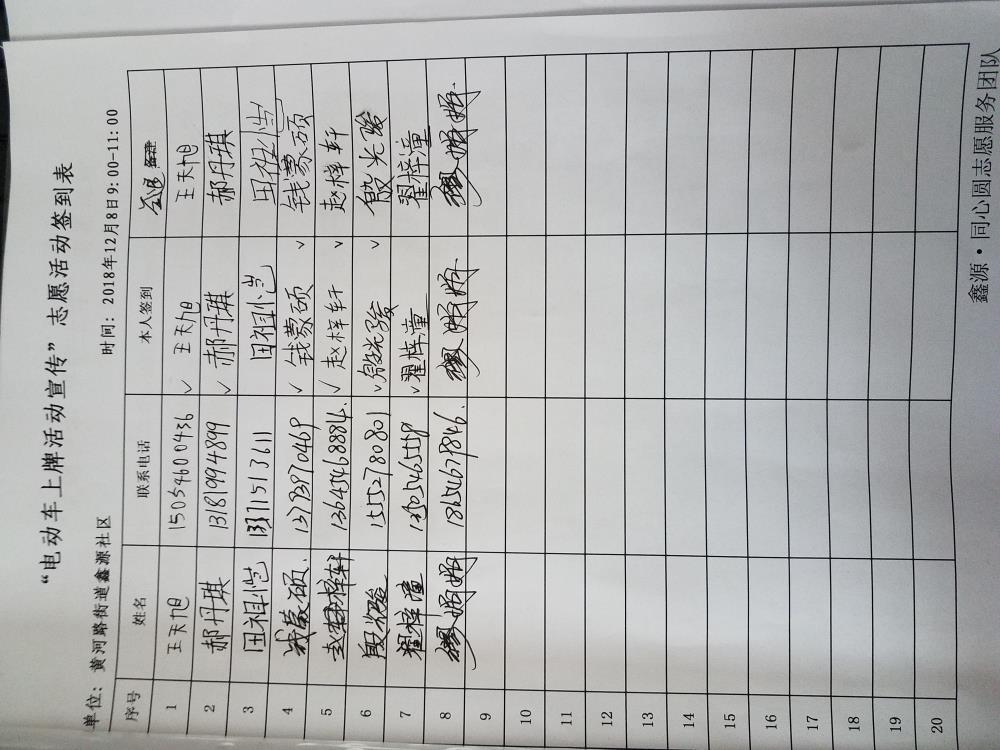 “电动车上牌活动宣传”志愿活动签到表
单位: 黄河路街道鑫源社区 时间: 2018年12月8日9:00-11:00
序号 姓名 联系电话 本人签到
1 王天旭 15054600436 ✓ 王天旭 王天旭
2 郝丹琪 13181994899 ✓ 郝丹琪 郝丹琪
3 田祖恺 田祖恺 田祖恺
4 钱蒙硕 13793970469 ✓ 钱蒙硕 ✓ 钱蒙硕
5 赵梓轩 13645468884. ✓ 赵梓轩 ✓ 赵梓轩
6 15552780801 ✓ ✓
7 翟梓潼 13505465559 ✓ 翟梓潼 翟梓潼
8 18654679846.
9
10
11
12
13
14
15
16
17
18
19
20
鑫源·同心圆志愿服务团队